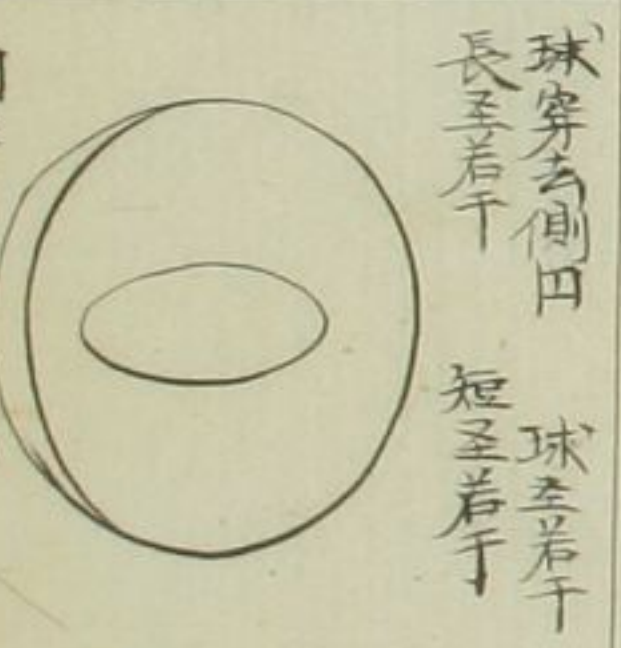 球穿去側円　球圣若干
長圣若干　短圣若干